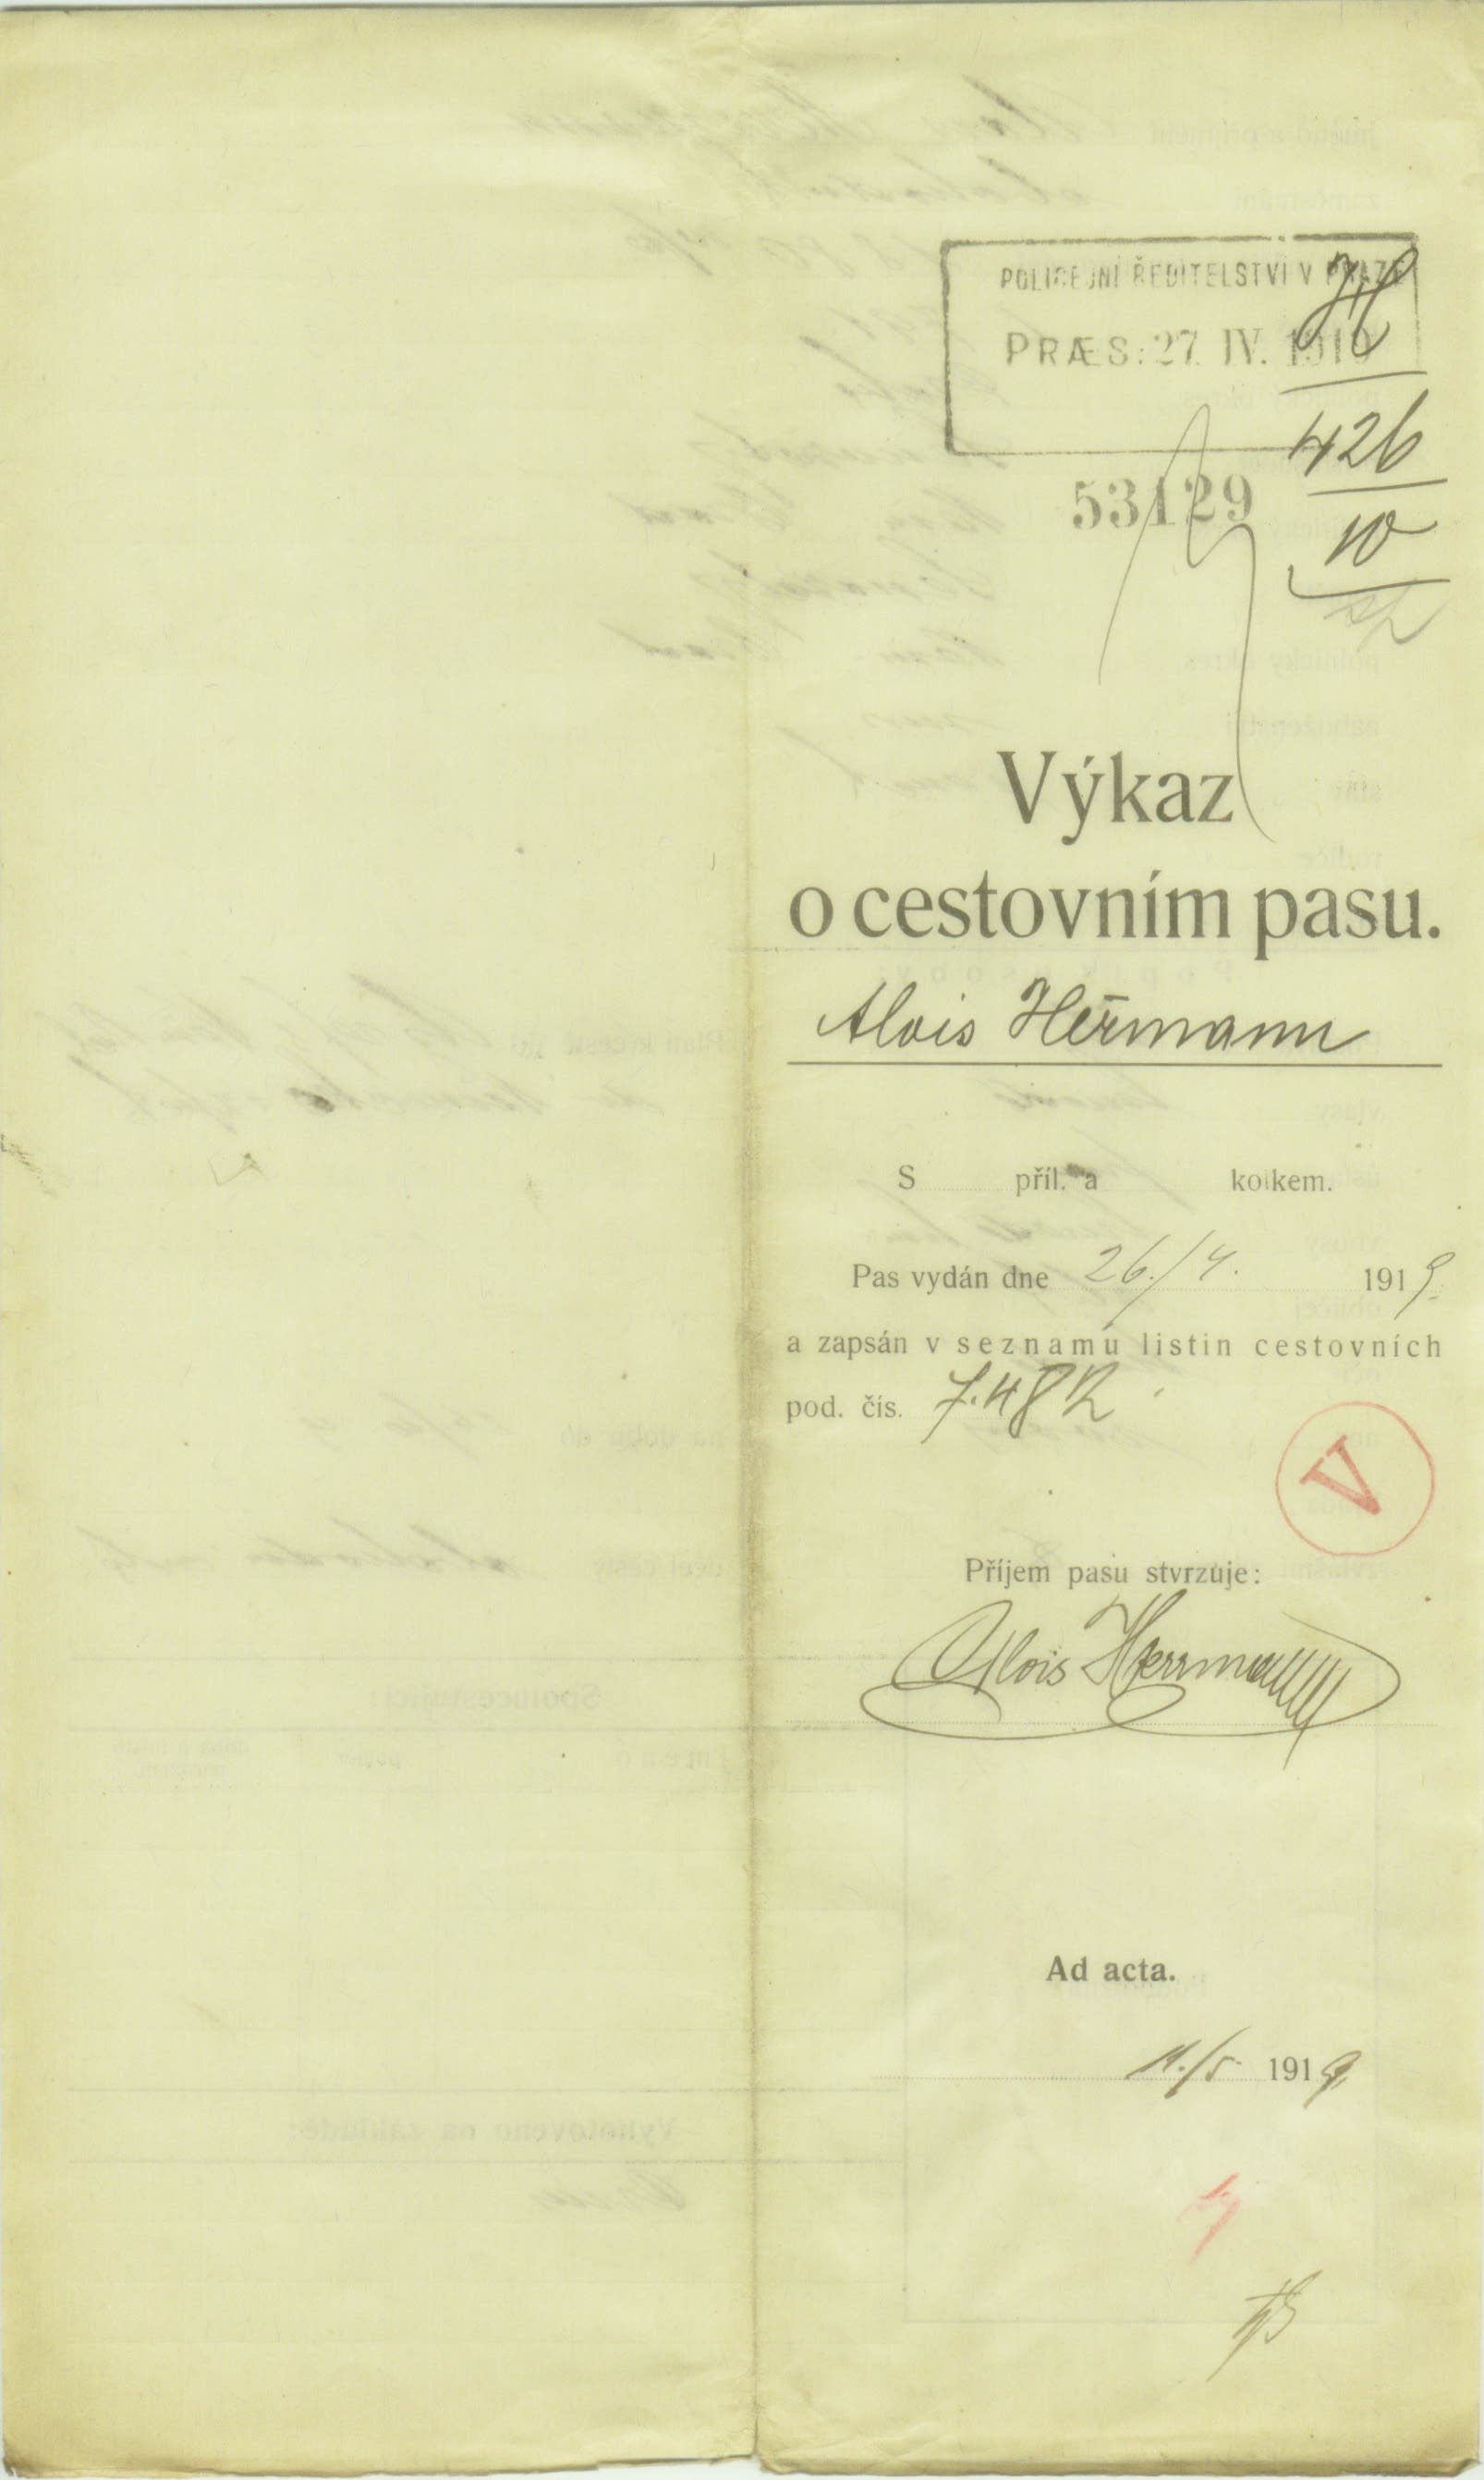 POLICEJNÍ ŘEDITELSTVÍ V PRAZE
PRÆS: 27. IV. 1919
H
426
10
53129
Výkaz
o cestovním pasu.
Alois Heřmann
S příl. a kolkem.
Pas vydán dne 26./4. 1919.
a zapsán v seznamu listin cestovních
pod. čís.
V
Příjem pasu stvrzuje:
Alois Herrmann
Ad acta.
11./5. 1919.